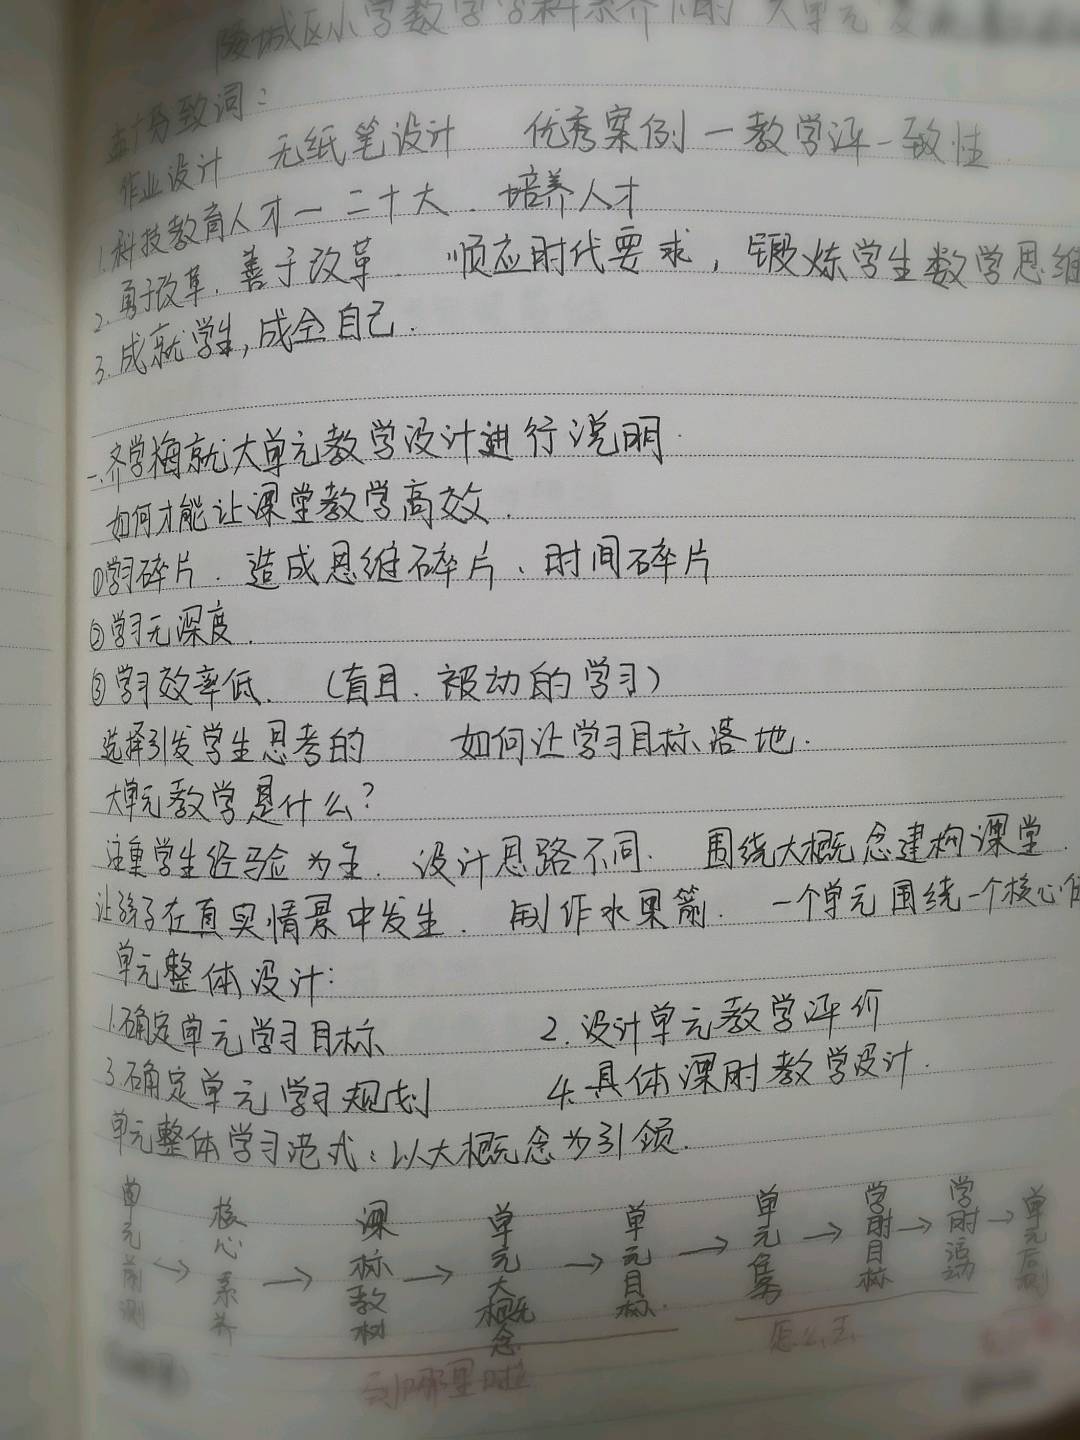 陵城区小学数学学科素养下的大单元
致词：
作业设计 无纸笔设计 优秀案例一教学评一致性
1.科技教育人才一二十大.培养人才
2.勇于改革.善于改革.顺应时代要求，锻炼学生数学思维
3.成就学生,成全自己.
一.齐学梅就大单元教学设计进行说明.
如何才能让课堂教学高效.
①学习碎片.造成思维碎片、时间碎片
②学习无深度.
③学习效率低.（盲目.被动的学习）
选择引发学生思考的 如何让学习目标落地.
大单元教学是什么?
注重学生经验为主.设计思路不同.围绕大概念建构课堂.
让孩子在真实情景中发生.制作水果箭.一个单元围绕一个核心
单元整体设计:
1.确定单元学习目标 2.设计单元教学评价
3.确定单元学习规划 4.具体课时教学设计.
单元整体学习范式:以大概念为引领.
单元前测→核心素养→课标教材→单元大概念→单元目标→单元任务→学时目标→学时活动→单元后测
到哪里啦 怎么去